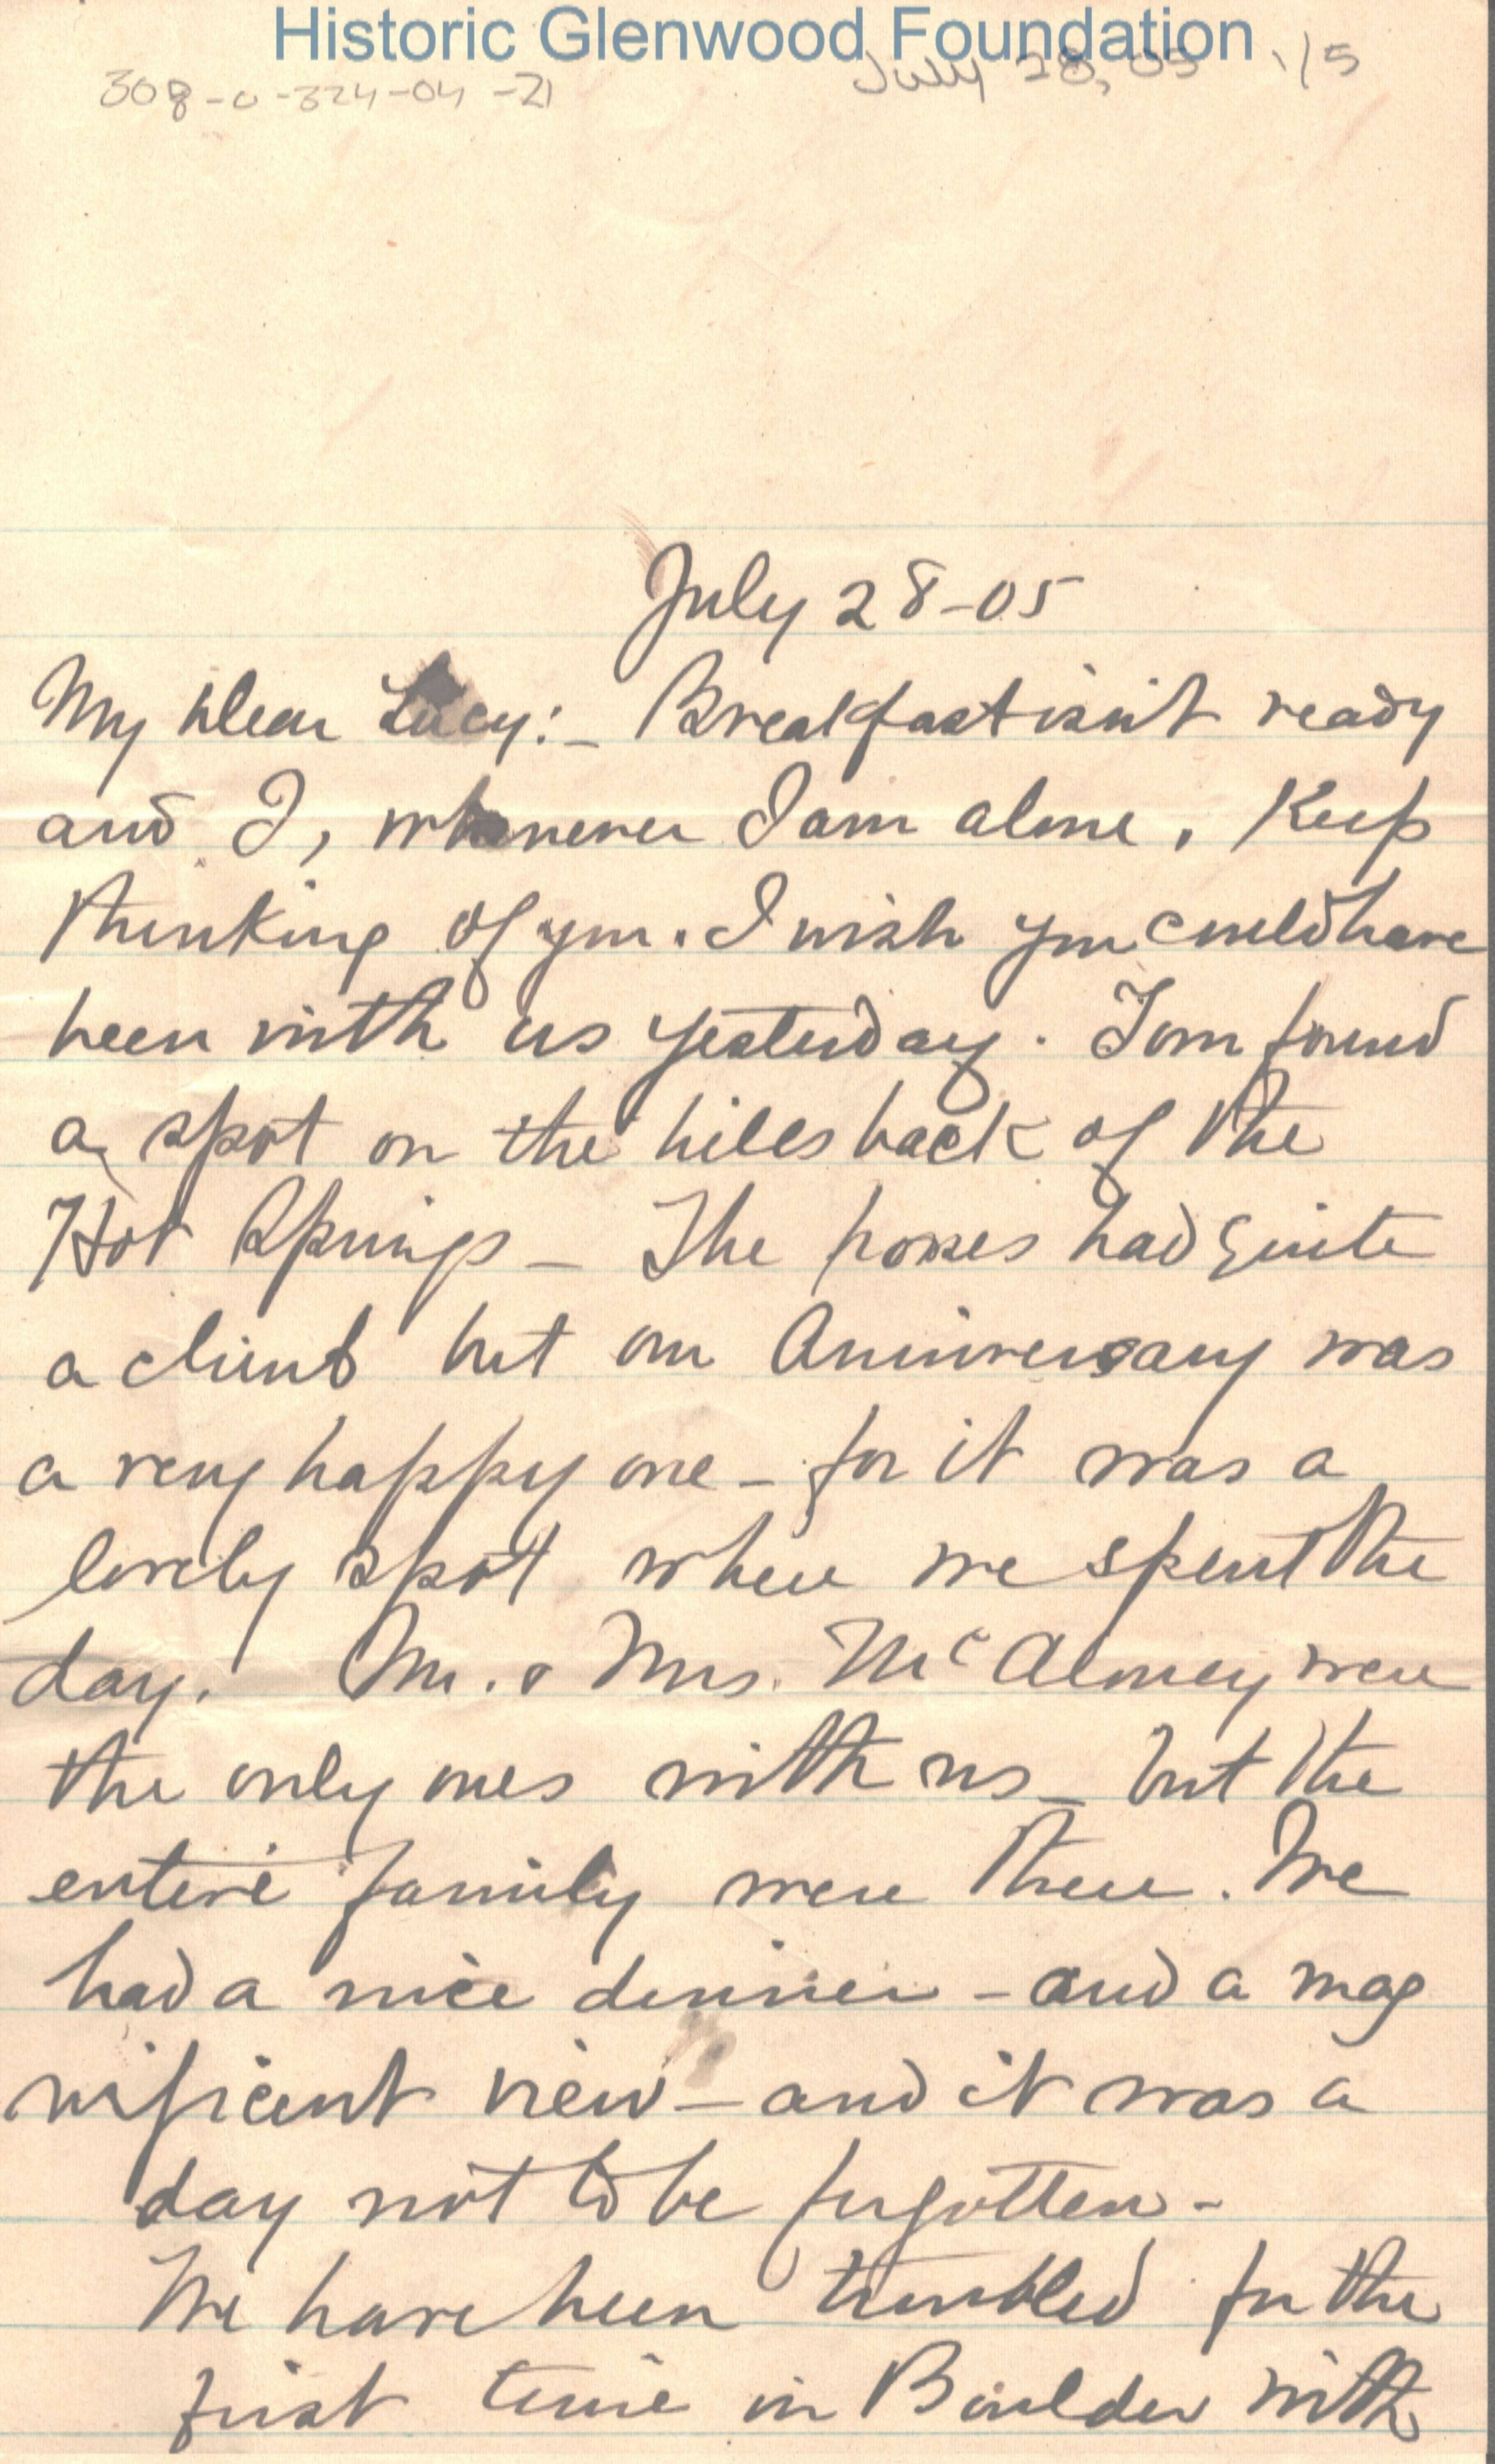 Historic Glenwood Foundation
308-0-324-04-21 July 28, 05 1/5
July 28-05
My dear Lucy:- Breakfast isn't ready
and I, whenever I am alone, keep
thinking of you. I wish you could have
been with us yesterday. Tom found
a spot on the hills back of the
Hot Springs - The horses had quite
a climb but our Anniversary was
a very happy one - for it was a
lovely spot where we spent the
day. Mr. & Mrs. McAlmey were
the only ones with us - but the
entire family were there. We
had a nice dinner - and a mag
nificent view - and it was a
day not to be forgotten -
We have been troubled for the
first time in Boulder with